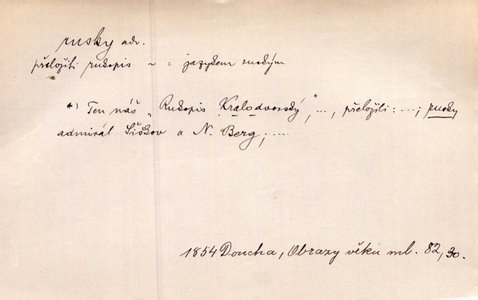 rusky adv.
přeložiti rukopis ~ = jazykem ruským
*) Ten náš „Rukopis Kralodvorský", ..., přeložili: ...; rusky
admirál Šiškov a N. Berg; ...
1854 Doucha, Obrazy věku ml. 82, 30.